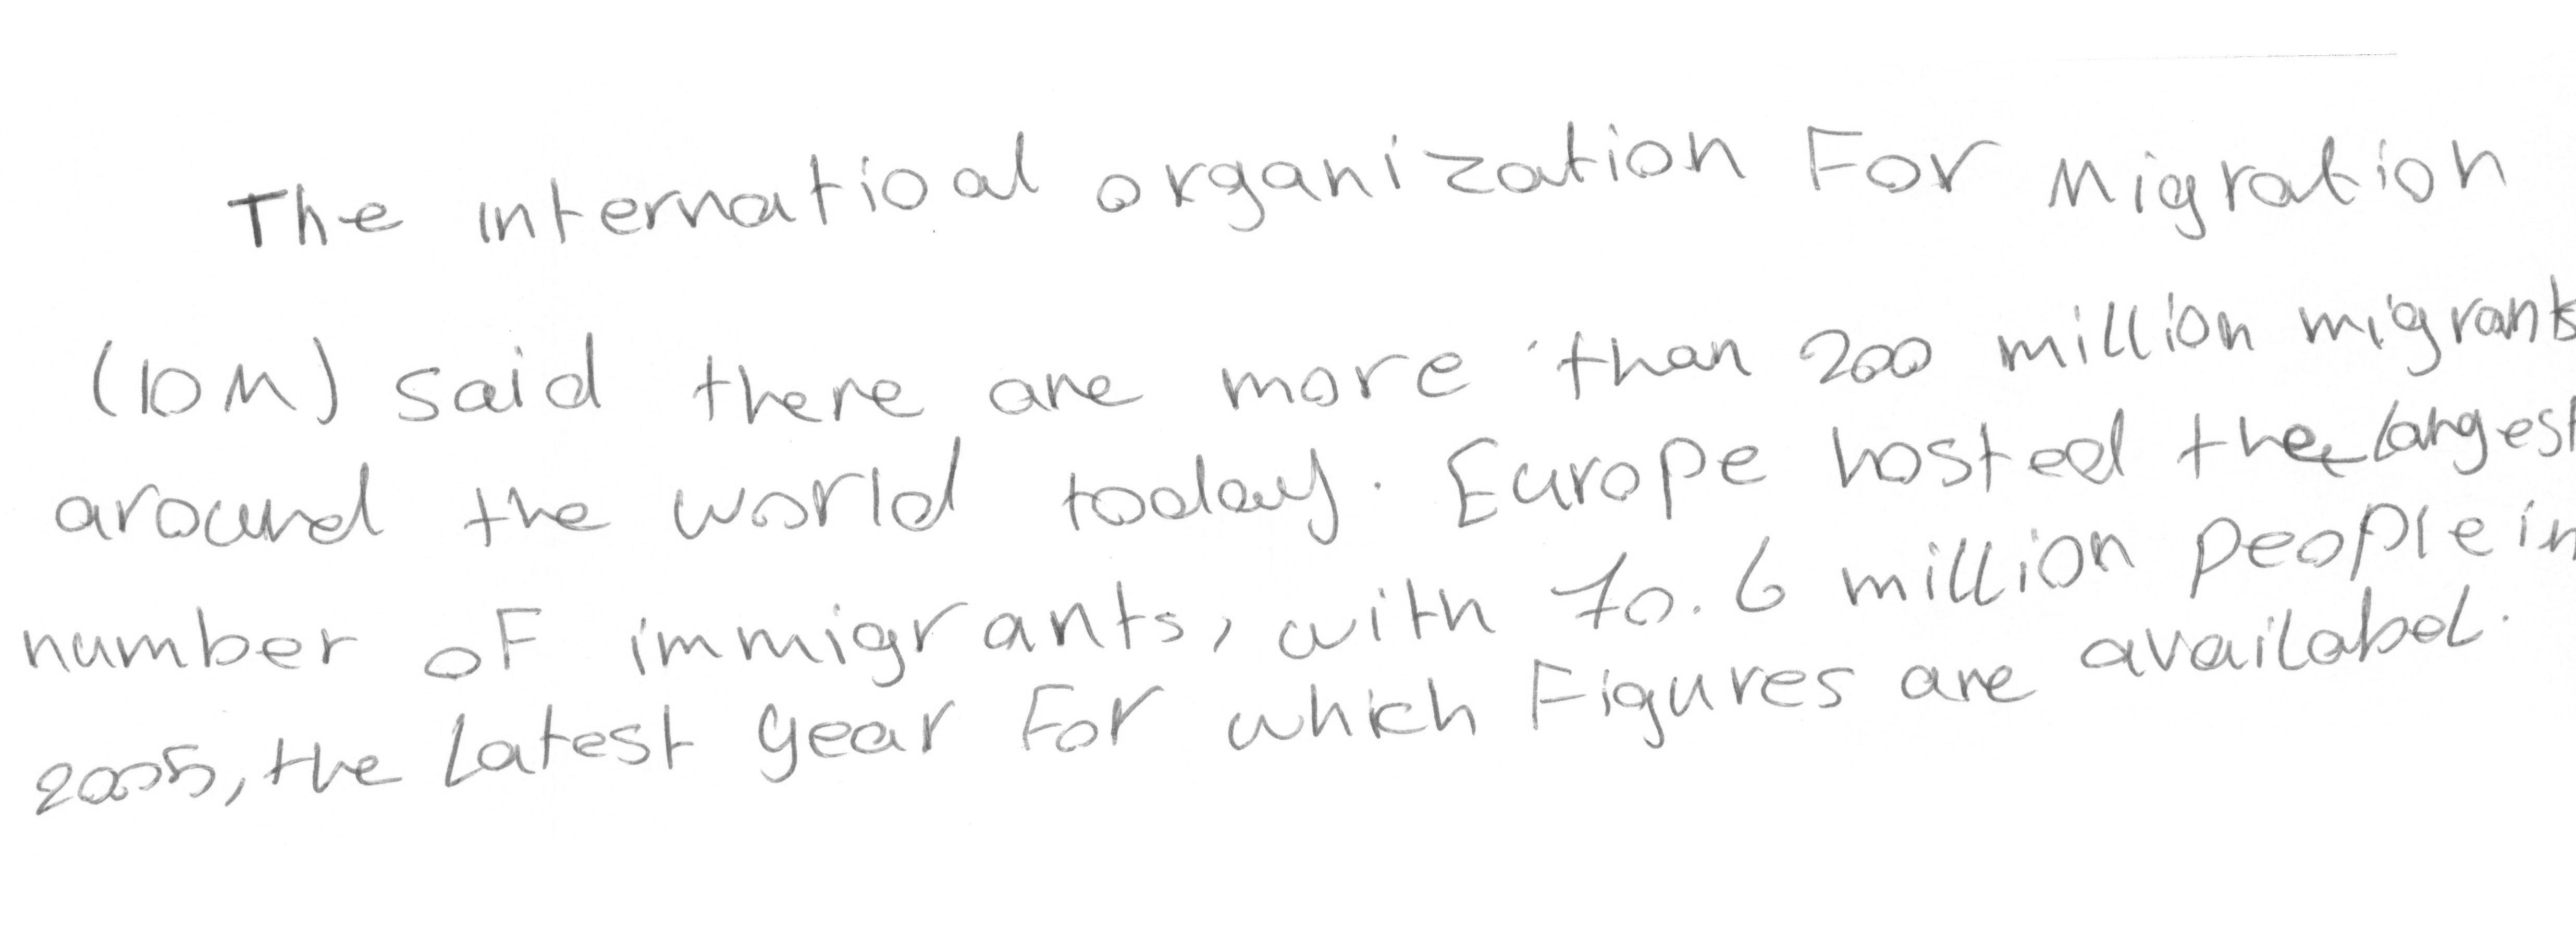 The internatioal organization For Migration
(IOM) said there are more than 200 million migrants
around the world today. Europe hosted the largest
number of immigrants, with 70.6 million people in
2005, the Latest year For which Figures are availabel.